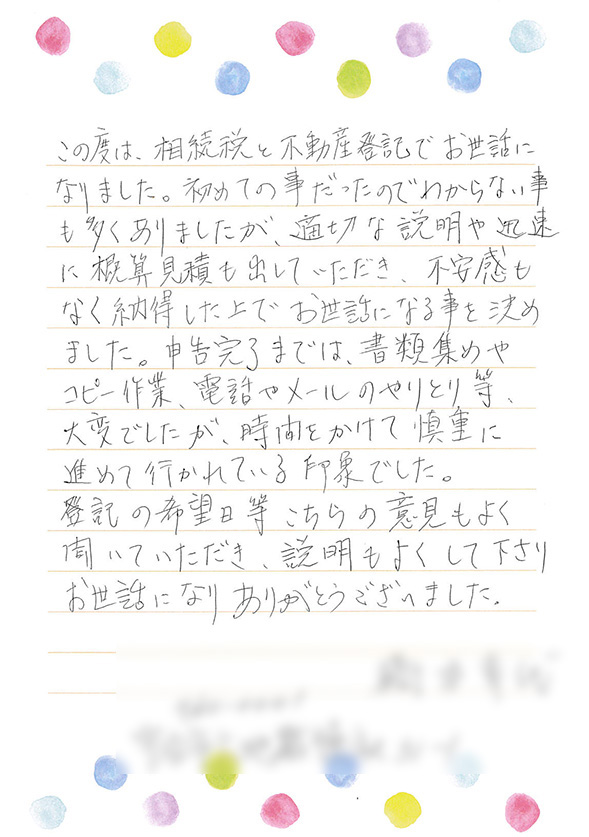 この度は、相続税と不動産登記でお世話に
なりました。初めての事だったのでわからない事
も多くありましたが、適切な説明や迅速
に概算見積も出していただき、不安感も
なく納得した上でお世話になる事を決め
ました。申告完了までは、書類集めや
コピー作業、電話やメールのやりとり等、
大変でしたが、時間をかけて慎重に
進めて行かれている印象でした。
登記の希望日等こちらの意見もよく
聞いていただき、説明もよくして下さり
お世話になりありがとうございました。